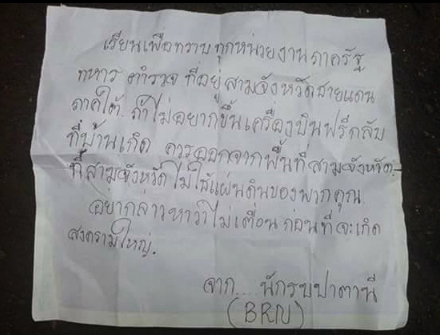 เรียนเพื่อทราบทุกหน่วยงานภาครัฐ
ทหาร ตำรวจ ที่อยู่สามจังหวัดชายแดน
ภาคใต้. ถ้าไม่อยากขึ้นเครื่องบินฟรีกลับ
ที่บ้านเกิด ควรออกจากพื้นที่สามจังหวัด.-
ที่สามจังหวัดไม่ใช่แผ่นดินของพวกคุณ.
อย่ากล่าวหาว่าไม่เตือน ก่อนที่จะเกิด
สงครามใหญ่.
จาก... นักรบปาตานี
(BRN)